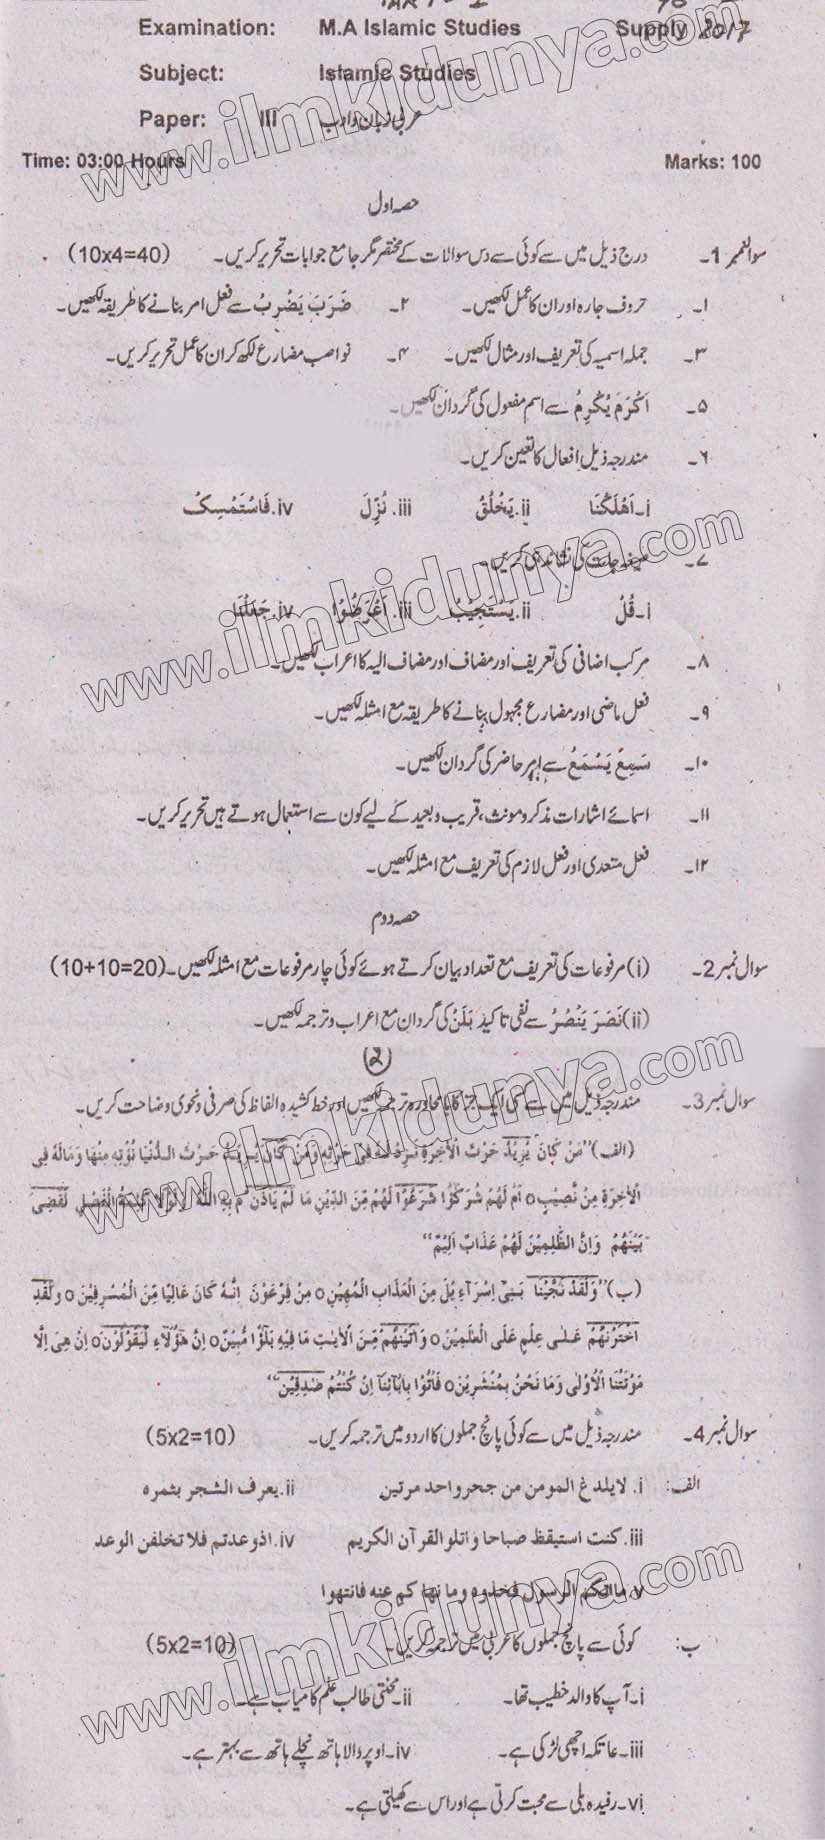 Examination: M.A Islamic Studies Supply 2017
Subject: Islamic Studies
Paper: III عربی زبان و ادب
Time: 03:00 Hours Marks: 100
حصہ اول
سوال نمبر 1۔ درج ذیل میں سے کوئی سے دس سوالات کے مختصر مگر جامع جوابات تحریر کریں۔ (10x4=40)
۱۔ حروف جارہ اور ان کا عمل لکھیں۔ ۲۔ ضَرَبَ یَضْرِبُ سے فعل امر بنانے کا طریقہ لکھیں۔
۳۔ جملہ اسمیہ کی تعریف اور مثال لکھیں۔ ۴۔ نواصب مضارع لکھ کر ان کا عمل تحریر کریں۔
۵۔ اَکْرَمَ یُکْرِمُ سے اسم مفعول کی گردان لکھیں۔
۶۔ مندرجہ ذیل افعال کا تعین کریں۔
i۔ اَهْلَكْنَا ii. يَخْلُقُ iii. نُزِّلَ iv. فَاسْتَمْسِكْ
۷۔ صیغہ جات کی نشاندہی کریں۔
i۔ قُلْ ii. يَسْتَجِيْبُ iii. اَعْرَضُوْا iv. جَعَلْنَا
۸۔ مرکب اضافی کی تعریف اور مضاف اور مضاف الیہ کا اعراب لکھیں۔
۹۔ فعل ماضی اور مضارع مجہول بنانے کا طریقہ مع امثلہ لکھیں۔
۱۰۔ سَمِعَ یَسْمَعُ سے امر حاضر کی گردان لکھیں۔
۱۱۔ اسمائے اشارات مذکر و مونث، قریب و بعید کے لیے کون سے استعمال ہوتے ہیں تحریر کریں۔
۱۲۔ فعل متعدی اور فعل لازم کی تعریف مع امثلہ لکھیں۔
حصہ دوم
سوال نمبر 2۔ (i) مرفوعات کی تعریف مع تعداد بیان کرتے ہوئے کوئی چار مرفوعات مع امثلہ لکھیں۔ (10+10=20)
(ii) نَصَرَ یَنْصُرُ سے نفی تاکید بَلَنْ کی گردان مع اعراب و ترجمہ لکھیں۔
2
سوال نمبر 3۔ مندرجہ ذیل میں سے کسی ایک جز کا بامحاورہ ترجمہ لکھیں اور خط کشیدہ الفاظ کی صرفی و نحوی وضاحت کریں۔
(الف) ”مَنْ كَانَ يُرِيْدُ حَرْثَ الْاٰخِرَةِ نَزِدْ لَهٗ فِيْ حَرْثِهٖ وَمَنْ كَانَ يُرِيْدُ حَرْثَ الدُّنْيَا نُؤْتِهٖ مِنْهَا وَمَا لَهٗ فِى
الْاٰخِرَةِ مِنْ نَّصِيْبٍ٥ اَمْ لَهُمْ شُرَكٰٓؤُا شَرَعُوْا لَهُمْ مِّنَ الدِّيْنِ مَا لَمْ يَاْذَنْ بِهِ اللّٰهُ وَلَوْلَا كَلِمَةُ الْفَصْلِ لَقُضِىَ
بَيْنَهُمْ وَاِنَّ الظّٰلِمِيْنَ لَهُمْ عَذَابٌ اَلِيْمٌ“
(ب) ”وَلَقَدْ نَجَّيْنَا بَنِىْ اِسْرَآءِيْلَ مِنَ الْعَذَابِ الْمُهِيْنِ٥ مِنْ فِرْعَوْنَ اِنَّهٗ كَانَ عَالِيًا مِّنَ الْمُسْرِفِيْنَ٥ وَلَقَدِ
اخْتَرْنٰهُمْ عَلٰى عِلْمٍ عَلَى الْعٰلَمِيْنَ٥ وَاٰتَيْنٰهُمْ مِّنَ الْاٰيٰتِ مَا فِيْهِ بَلٰٓؤٌا مُّبِيْنٌ٥ اِنَّ هٰٓؤُلَاءِ لَيَقُوْلُوْنَ٥ اِنْ هِىَ اِلَّا
مَوْتَتُنَا الْاُوْلٰى وَمَا نَحْنُ بِمُنْشَرِيْنَ٥ فَاْتُوْا بِاٰبَآئِنَا اِنْ كُنْتُمْ صٰدِقِيْنَ“
سوال نمبر 4۔ مندرجہ ذیل میں سے کوئی پانچ جملوں کا اردو میں ترجمہ کریں۔ (5x2=10)
الف: i. لا يلدغ المومن من جحر واحد مرتين ii. يعرف الشجر بثمره
iii. كنت استيقظ صباحا واتلو القرآن الكريم iv. اذ وعدتم فلا تخلفن الوعد
v. ما اتكم الرسول فخذوه وما نهاكم عنه فانتهوا
ب: کوئی سے پانچ جملوں کا عربی میں ترجمہ کریں۔ (5x2=10)
i۔ آپ کا والد خطیب تھا۔ ii۔ محنتی طالب علم کامیاب ہے۔
iii۔ عاتکہ اچھی لڑکی ہے۔ iv۔ اوپر والا ہاتھ نچلے ہاتھ سے بہتر ہے۔
vi۔ رفیدہ بلی سے محبت کرتی ہے اور اس سے کھیلتی ہے۔
www.ilmkidunya.com
www.ilmkidunya.com
www.ilmkidunya.com
www.ilmkidunya.com